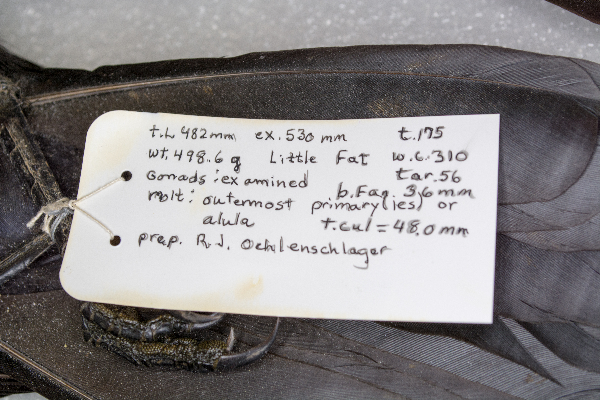 t.L 482mm ex. 530 mm t.175
wt. 498.6 g Little Fat w.c. 310
Gonads: examined tar. 56
molt: outermost primary(ies) or b. Fan. 3,6 mm
alula t.cul = 48.0 mm
prep. R.J. Oehlenschlager